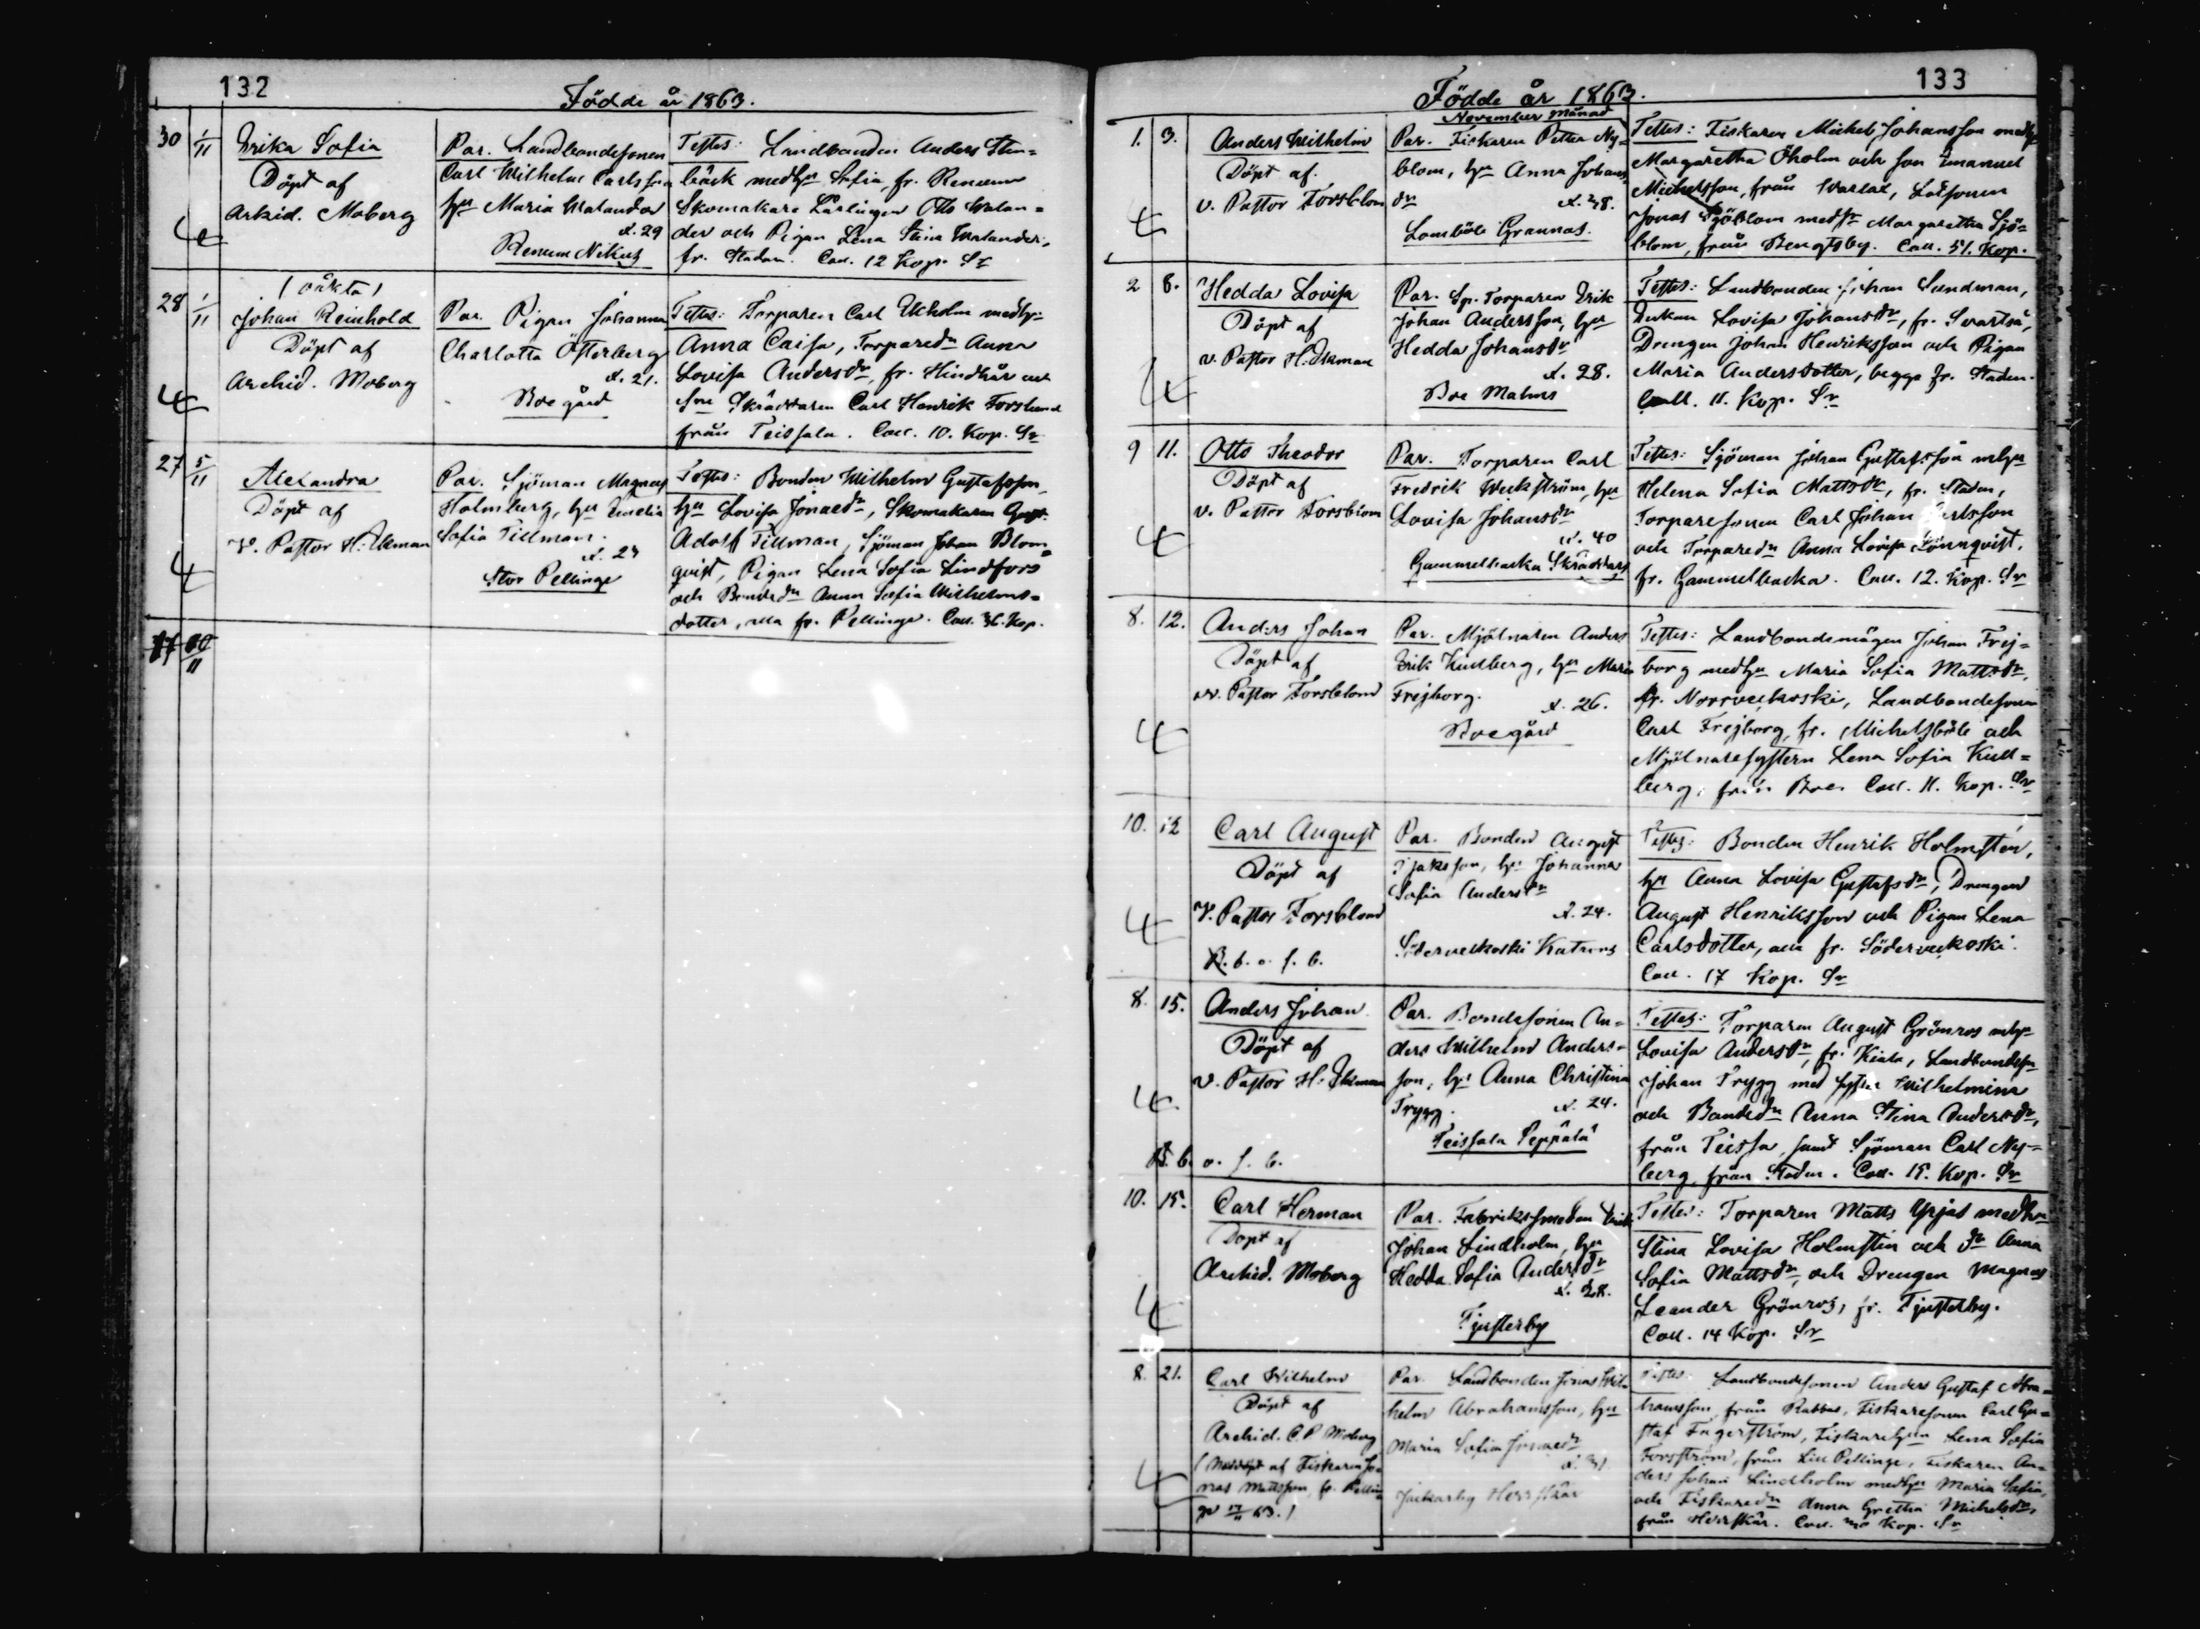 132
Födde år 1863.
30 1/11
Erika Sofia
Döpt af
Arkid. Moberg
Par. Landbondesonen
Carl Wilhelm Carlsson
hu Maria Walander
Æ. 29
Renum Nikus
Testes: Landbonden Anders Sten=
bäck med hu Sofia fr. Renum
Skomakare Lärlingen Otto Walan=
der och Pigan Lena Stina Walander,
fr. Staden. Coll. 12 Kop. Sr
28 1/11
(oäkta)
Johan Reinhold
Döpt af
Archid. Moberg
Par. Pigan Johanna
Charlotta Österberg
Æ. 21.
Boe gård
Testes: Torparen Carl Ekholm med hu
Anna Caisa, Torparedr Anna
Lovisa Andersdr, fr. Hindhår
Skräddaren Carl Henrik Forslund
från Teissala. Coll. 10. Kop. Sr
27 5/11
Alexandra
Döpt af
V. Pastor H. Ekman
Par. Sjöman Magnus
Holmberg, hu Amelia
Sofia Tillman.
Æ. 24
Stor Pellinge
Testes: Bonden Wilhelm Gustafsson,
hu Lovisa Jonaedr, Skomakaren Gust.
Adolf Tillman, Sjöman Johan Blom=
qvist, Pigan Lena Sofia Lindfors
och Bondedr Anna Sofia Wilhelms=
dotter, alla fr. Pellinge. Coll. 36. Kop.
133
Födde år 1863.
November Månad
1. 3.
Anders Wilhelm
Döpt af.
v. Pastor Forsblom
Par. Fiskaren Petter Ny=
blom, hu Anna Johans
dr Æ. 48.
Lomböle Grannas.
Testes: Fiskaren Michel Johansson med hu
Margaretha Öholm och son Emanuel
Michelsson, från Warlax, Lotsonen
Jonas Sjöblom med hu Margaretha Sjö=
blom, från Bengtsby. Coll. 51. Kop.
2 8.
Hedda Lovisa
Döpt af
v. Pastor H. Ekman
Par. Sp. Torparen Erik
Johan Andersson, hu
Hedda Johansdr
Æ. 28.
Boe Malms
Testes: Landbonden Johan Sundman,
Enkan Lovisa Johansdr, fr. Svartså,
Drengen Johan Henriksson och Pigan
Maria Andersdotter, begge fr. Staden.
Coll. 11. Kop. Sr
9 11.
Otto Theodor
Döpt af
v. Pastor Forsblom
Par. Torparen Carl
Fredrik Weckström, hu
Lovisa Johansdr
Æ. 40
Gammelbacka Skräddars
Testes: Sjöman Johan Gustafsson m hu
Helena Sofia Mattsdr, fr. Staden,
Torparesonen Carl Johan Carlsson
och Torparedr Anna Lovisa Lönnqvist,
fr. Gammelbacka. Coll. 12. Kop. Sr
8. 12.
Anders Johan
Döpt af
v. Pastor Forsblom
Par. Mjölnaren Anders
Erik Kullberg, hu Maria
Frejborg.
Æ. 26.
Boe gård
Testes: Landbondemågen Johan Frej=
borg med hu Maria Sofia Mattsdr,
fr. Norrveckoski, Landbondesonen
Carl Frejborg, fr. Michelsböle och
Mjölnaresystern Lena Sofia Kull=
berg, från Boe. Coll. 11. Kop. Sr
10. 12
Carl August
Döpt af
V. Pastor Forsblom
B. b. o. f. b.
Par. Bonden August
Isaksson, hu Johanna
Sofia Andersdr
Æ. 24.
Söderveckoski Katrins
Testes: Bonden Henrik Holmstén,
hu Anna Lovisa Gustafsdr, Drengen
August Henriksson och Pigan Lena
Carlsdotter, alla fr. Söderveckoski.
Coll. 17 Kop. Sr
8. 15.
Anders Johan
Döpt af
v. Pastor H. Ekman
B. b. o. f. b.
Par. Bondesonen An=
ders Wilhelm Anders=
son, hu Anna Christina
Trygg. Æ. 24.
Teissala Peppälä
Testes: Torparen August Grönros m hu
Lovisa Andersdr, fr. Kiala, Landbondeson
Johan Trygg med syster Wilhelmina
och Bondedr Anna Stina Andersdr,
från Teissa, samt Sjöman Carl Ny=
berg, från Staden. Coll. 15. Kop. Sr
10. 15.
Carl Herman
Döpt af
Archid. Moberg
Par. Fabrikssmeden Erik
Johan Lindholm, hu
Hedda Sofia Andersdr
Æ. 28.
Tjusterby
Testes: Torparen Matts Yrjas med hu
Stina Lovisa Holmstén och dr Anna
Sofia Mattsdr, och Drengen Magnus
Leander Grönros, fr. Tjusterby.
Coll. 14 Kop. Sr
8. 21.
Carl Wilhelm
Döpt af
Archid. C. P. Moberg
(Nöddöpt af Fiskaren Jo=
nas Mattsson, fr. Pellin=
ge 17/11 63.)
Par. Landbonden Jonas Wil=
helm Abrahamsson, hu
Maria Sofia Jonaedr
Æ. 31
Jackarby Herrskär
Testes: Landbondesonen Anders Gustaf Abra=
hamsson, från Rabbas, Fiskaresonen Carl Gu=
staf Fagerström, Fiskarehu Lena Sofia
Forsström, från Lill Pellinge, Fiskaren An=
ders Johan Lindholm med hu Maria Sofia,
och Fiskaredr Anna Gretha Michelsdr,
från Herrskär. Coll. Kop. Sr